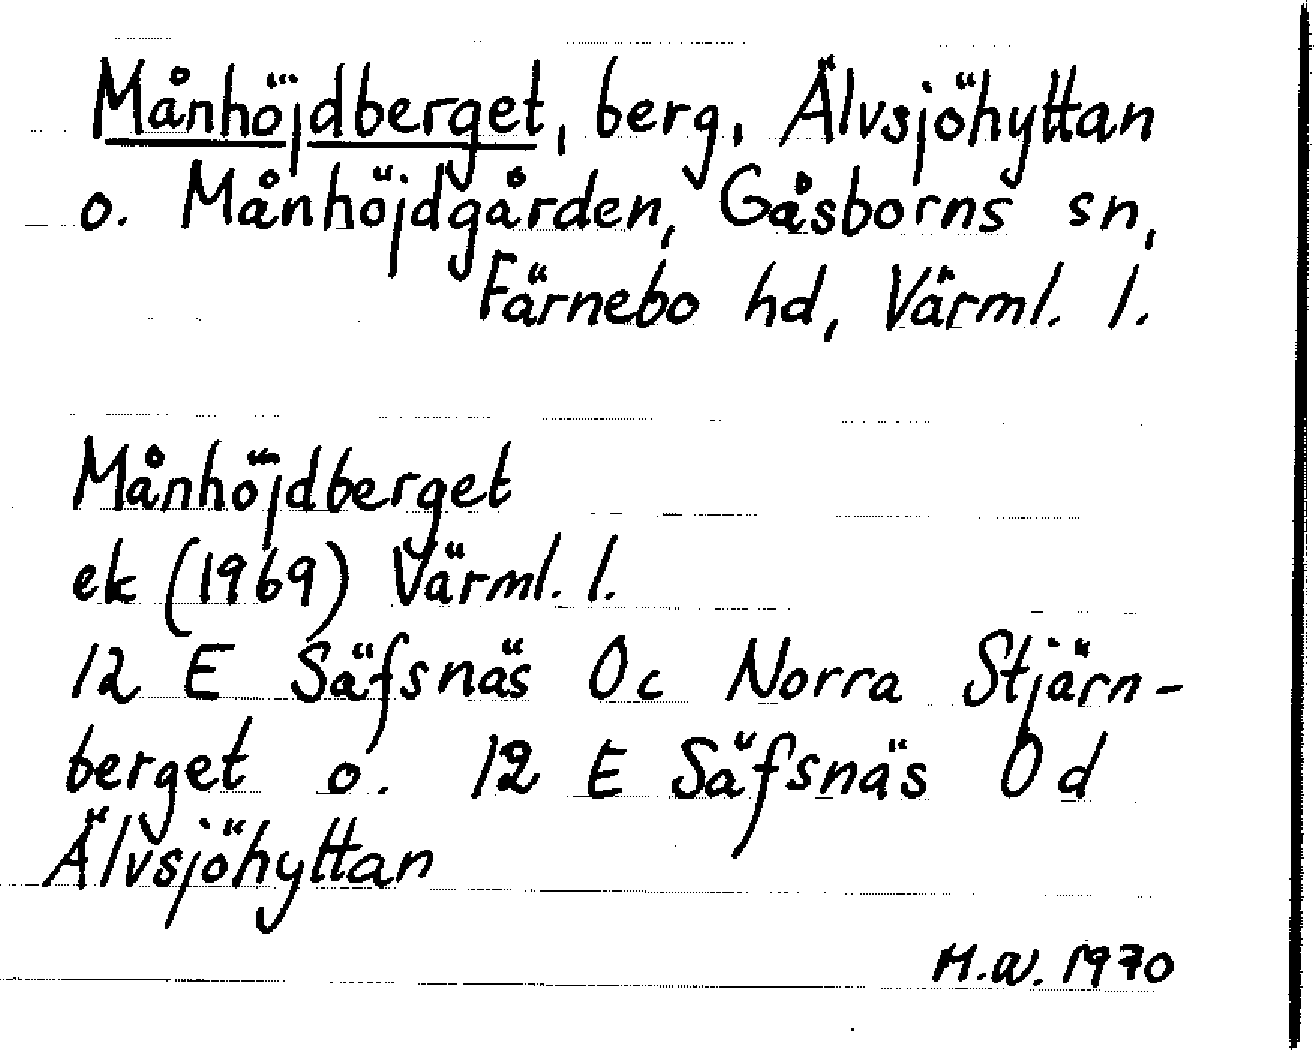 Månhöjdberget, berg, Älvsjöhyttan
o. Månhöjdgården, Gåsborns sn,
Färnebo hd, Värml. l.
Månhöjdberget
ek (1969) Värml. l.
12 E Säfsnäs 0c Norra Stjärn-
berget o. 12 E Säfsnäs 0d
Älvsjöhyttan
M.W. 1970